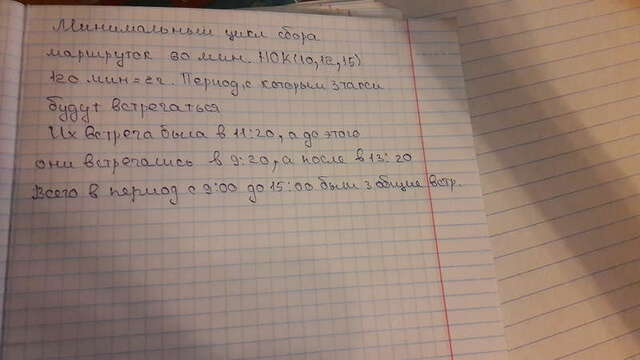 Минимальный цикл сбора
маршруток 20 мин. НОК(10,12,15)
120 мин = 2ч. Период, с которым эти
будут встречаться
Их встреча была в 11:20, а до этого
они встречались в 9:20, а после в 13:20
Всего в период с 9:00 до 15:00 были 3 общие встр.